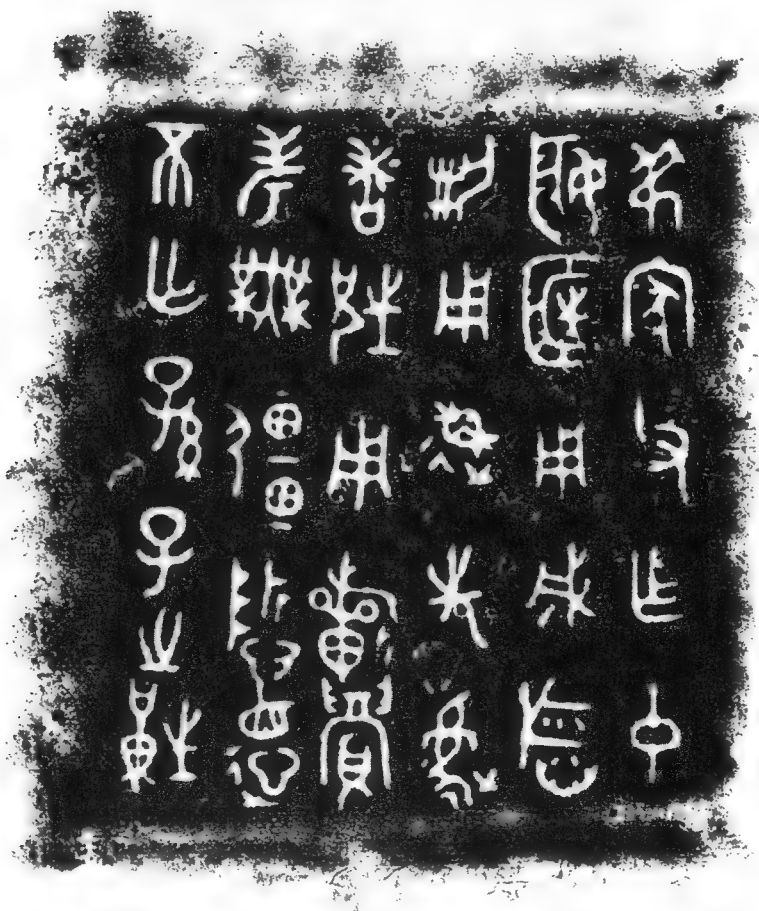 弔家父乍中
姬匡用成稻
梁用速先後
者兄用祈眉
考無疆哲德
不亡孫子之貺